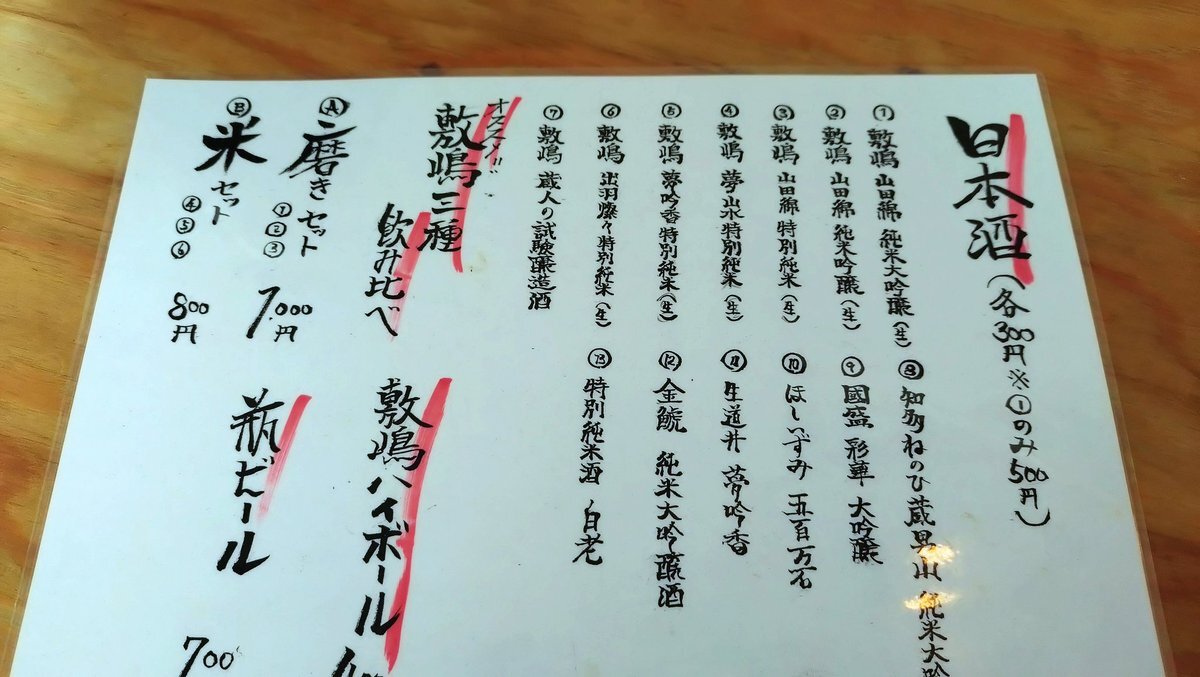 日本酒（各300円※①のみ500円）
① 敷嶋 山田錦 純米大吟醸（生）
② 敷嶋 山田錦 純米吟醸（生）
③ 敷嶋 山田錦 特別純米（生）
④ 敷嶋 夢山水特別純米（生）
⑤ 敷嶋 夢吟香特別純米（生）
⑥ 敷嶋 出羽燦々特別純米（生）
⑦ 敷嶋 蔵人の試験醸造酒
⑧ 知多ねのひ蔵 山 純米大吟
⑨ 國盛 彩華 大吟醸
⑩ ほしいずみ 五百万石
⑪ 生道井 夢吟香
⑫ 金鯱 純米大吟醸酒
⑬ 特別純米酒 白老
オススメ!!
敷嶋三種
飲み比べ
Ⓐ磨きセット
①②③
1,000円
Ⓑ米セット
④⑤⑥
800円
敷嶋ハイボール
瓶ビール
700